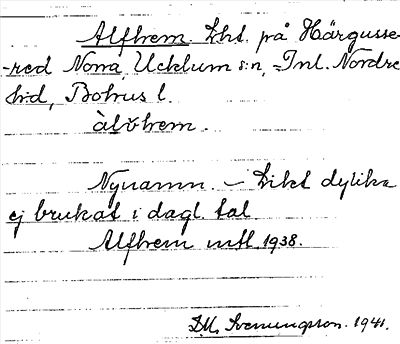 Alfhem. Lht. på Härgusse-
-red Norra, Ucklum s:n, Inl. Nordre
h:d, Bohus l.
àlvhem.
Nynamn. — Likt dylika
ej brukat i dagl. tal.
Alfhem mtl. 1938.
D.M. Svenungsson. 1941.